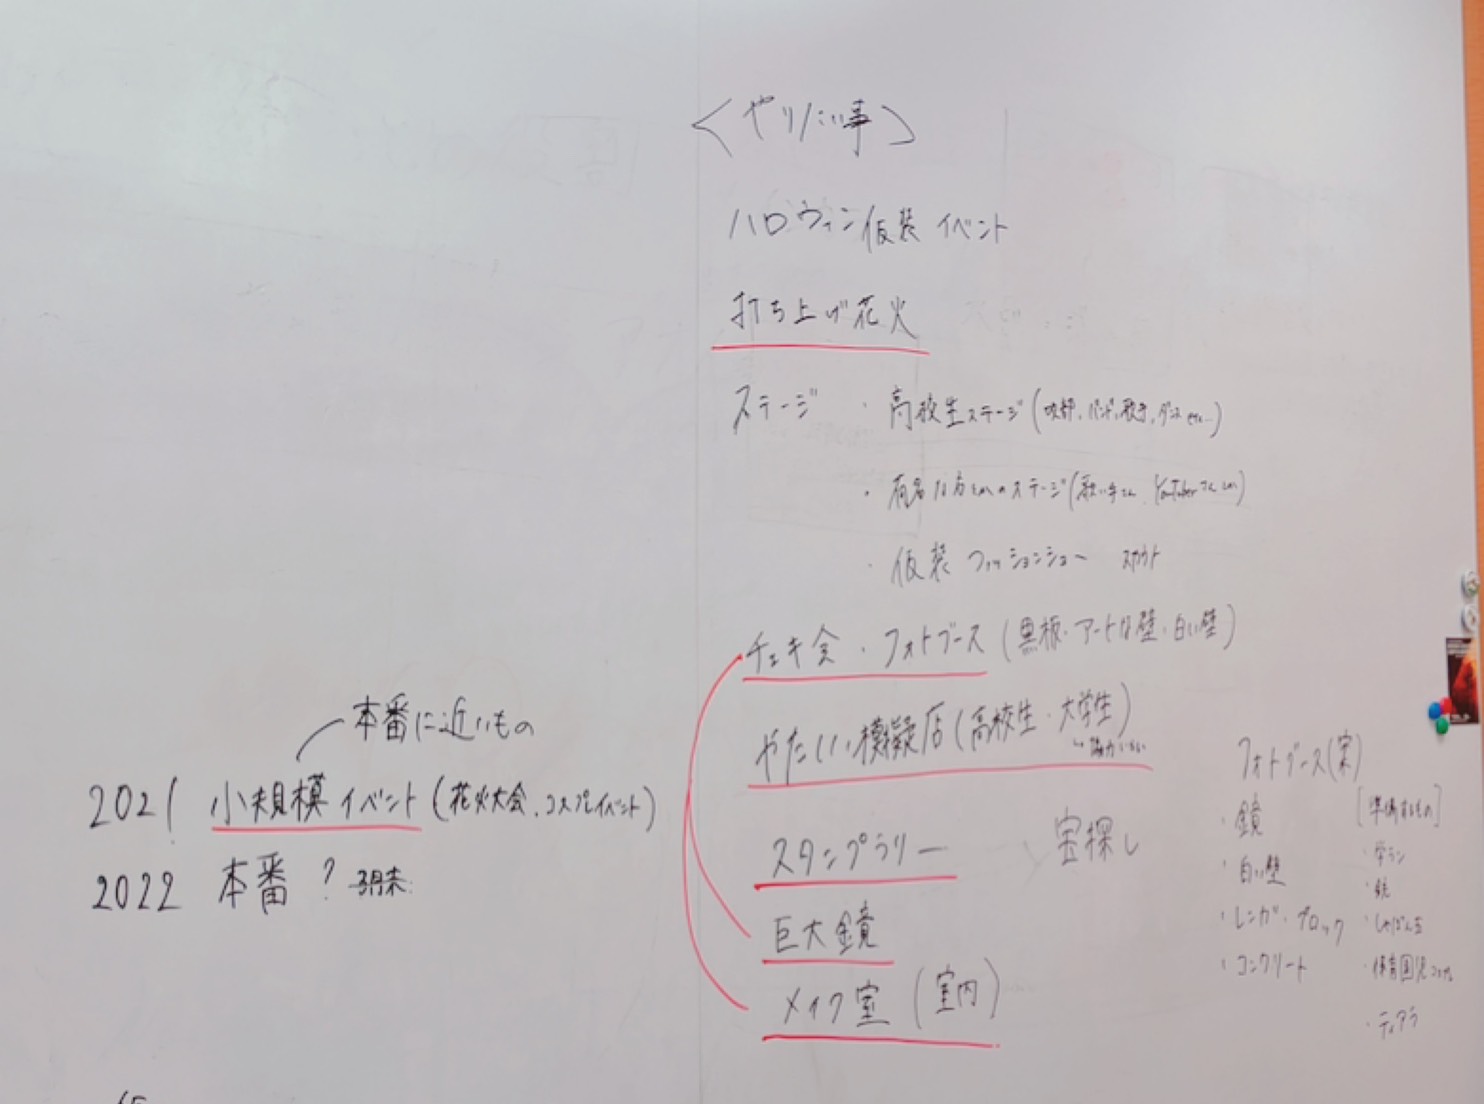 <やりたい事>
ハロウィン仮装イベント
打ち上げ花火
ステージ ・高校生ステージ(吹部、バンド、歌手、ダンス etc...)
・有名な方々のステージ(歌い手さん YouTuberさん
・仮装ファッションショー スカウト
チェキ会・フォトブース(黒板・アートな壁・白い壁)
やたい模擬店(高校生・大学生)
スタンプラリー 宝探し
巨大鏡
メイク室(室内)
本番に近いもの
2021 小規模イベント(花火大会、コスプレイベント)
2022 本番? 3月末
フォトブース(案)
・鏡
・白い壁
・レンガ・ブロック
・コンクリート
[準備するもの]
・学ラン
・しゃぼん玉
・保育園児コスプレ
・ティアラ